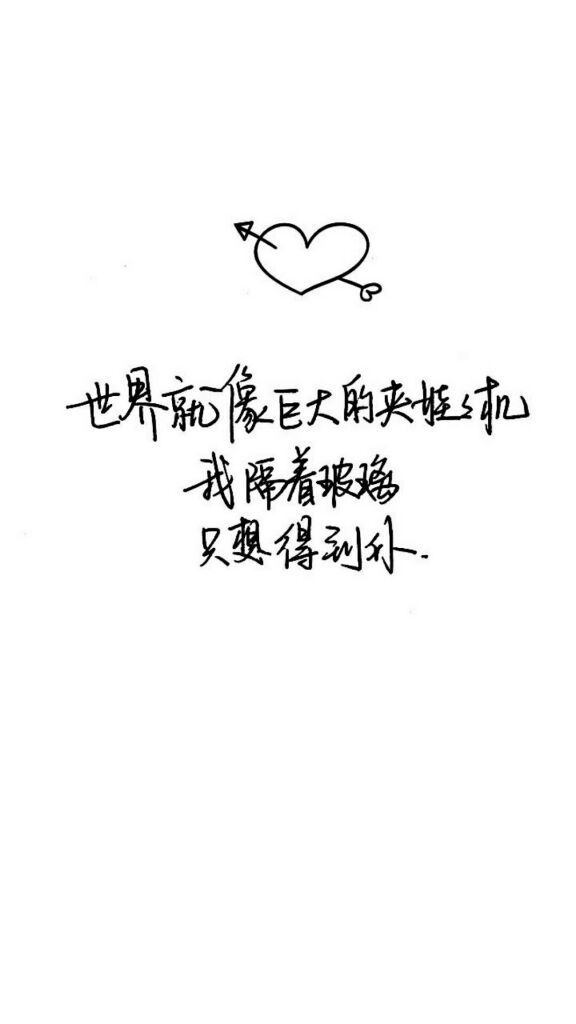 世界就像巨大的夹娃娃机
我隔着玻璃
只想得到你.